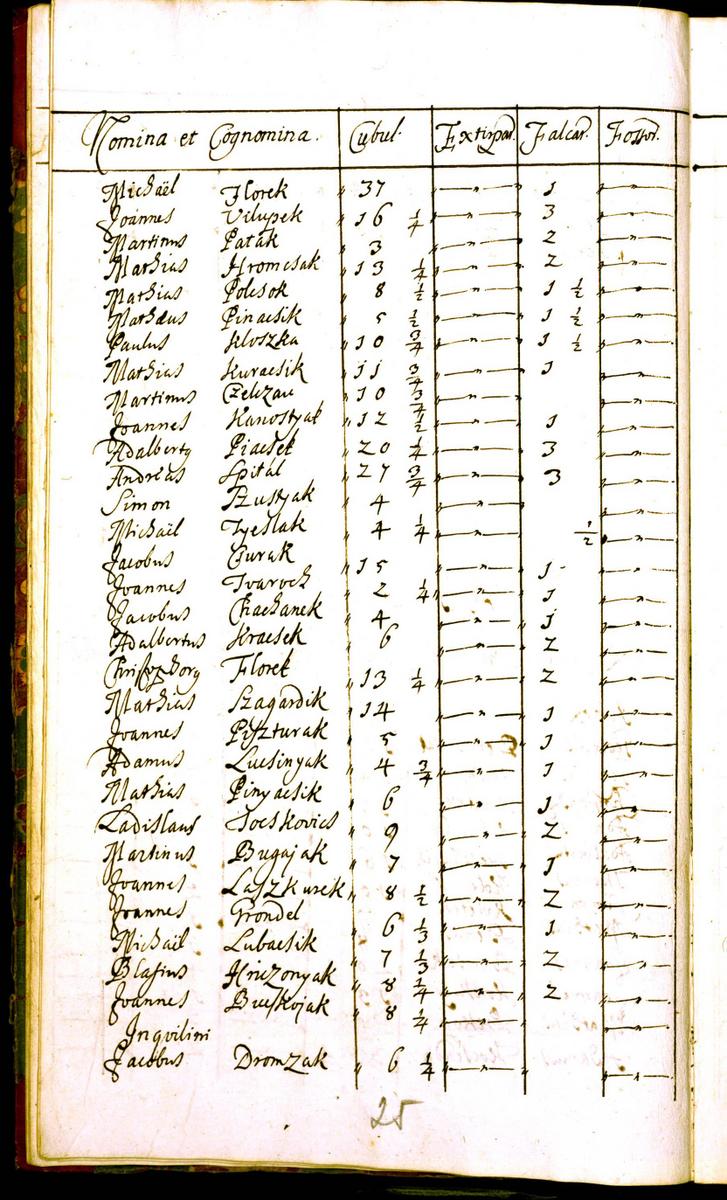 Nomina et Cognomina. Cubul. Extirpar. Falcar. Fossor.
Michaël Florek " 37 " — " — 1 " — " —
Joannes Vilupek " 16 1/4 " — " — 3 " — " —
Martinus Patak " 3 " — " — 2 " — " —
Mathias Hromcsak " 13 1/4 " — " — 2 " — " —
Mathias Polcsok " 8 1/2 " — " — 1 1/2 " — " —
Mathæus Pinacsik " 5 1/2 " — " — 1 1/2 " — " —
Paulus Kloszka " 10 3/4 " — " — 1 1/2 " — " —
Mathias Kuracsik " 11 3/4 " — " — 1 " — " —
Martinus " 10 3/4 " — " — " — " —
Joannes Kanostyak " 12 1/2 " — " — 1 " — " —
Adalberty Piacsek " 20 1/4 " — " — 3 " — " —
Andreas Spital " 27 3/4 " — " — 3 " — " —
Simon Szustyak " 4 " — " — " — " —
Michaël Tyeslak " 4 1/4 " — " — 1/2 " — " —
Jacobus Curak " 15 " — " — 1 " — " —
Joannes Tvaroch " 2 1/4 " — " — 1 " — " —
Jacobus Chachanek " 4 " — " — 1 " — " —
Adalbertus Kracsek " 6 " — " — 2 " — " —
Florek " 13 1/4 " — " — 2 " — " —
Mathias Szagardik " 14 " — " — 1 " — " —
Joannes Piszturak " 5 " — " — 1 " — " —
Adamus Lucsinyak " 4 3/4 " — " — 1 " — " —
Mathias Pinyacsik " 6 " — " — 1 " — " —
Ladislaus Socskovics " 9 " — " — 2 " — " —
Martinus Bugajak " 7 " — " — 1 " — " —
Joannes Laszkurek " 8 1/2 " — " — 2 " — " —
Joannes Grondel " 6 1/3 " — " — 1 " — " —
Michaël Lubacsik " 7 1/3 " — " — 2 " — " —
Blasius Hriczonyak " 8 1/4 " — " — 2 " — " —
Joannes Bucskojak " 8 1/4 " — " — " — " —
Inqvilini
Jacobus Dromzak " 6 1/4 " — " — " — " —
25